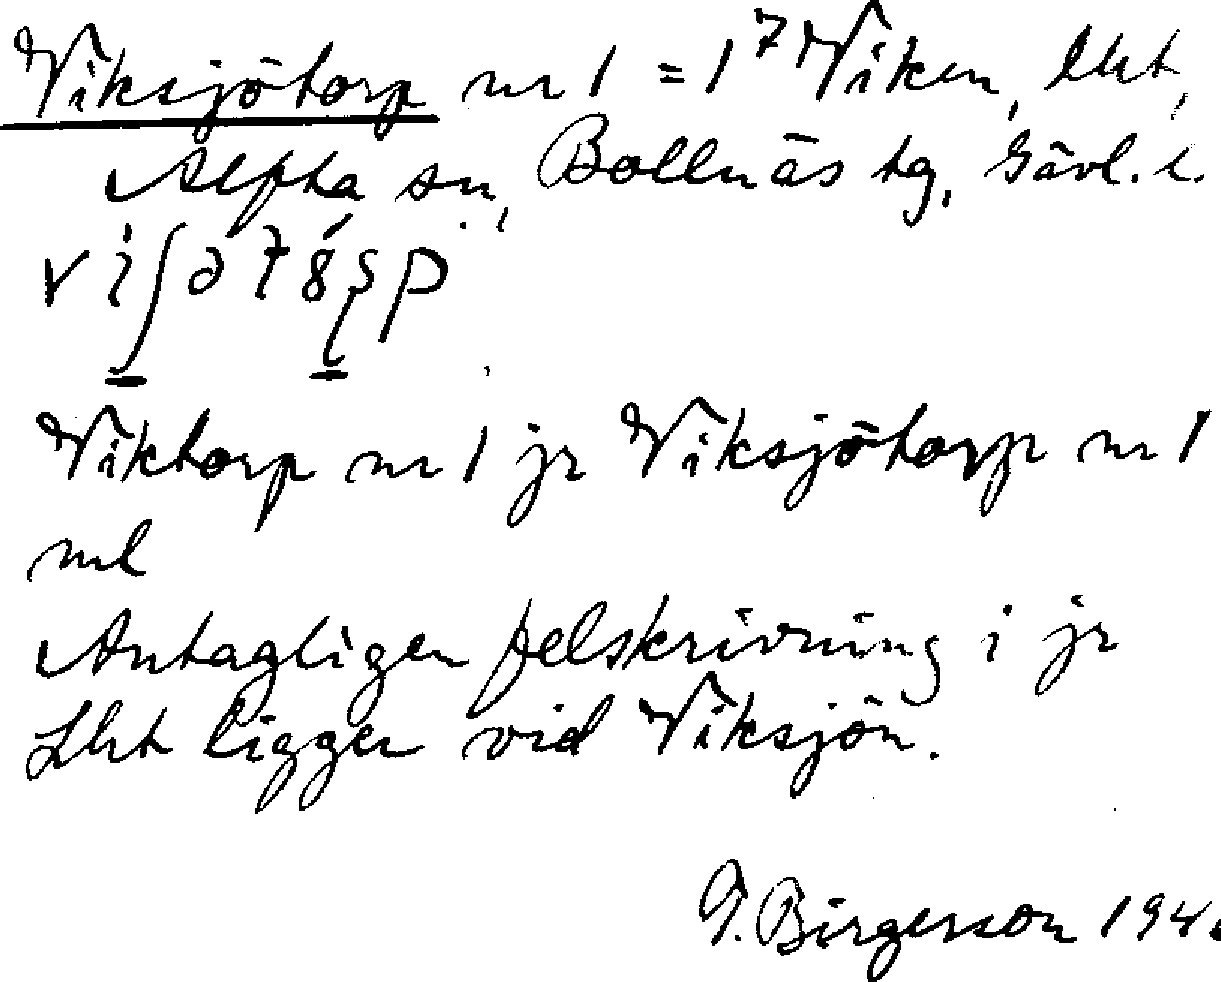 Viksjötorp nr 1 = 1⁷ Viken, lht,
Alfta sn, Bollnäs tg, Gävl. l.
Viktorp nr 1 jr Viksjötorp nr 1
ml
Antagligen felskrivning i jr
Lht ligger vid Viksjön.
G. Birgerson